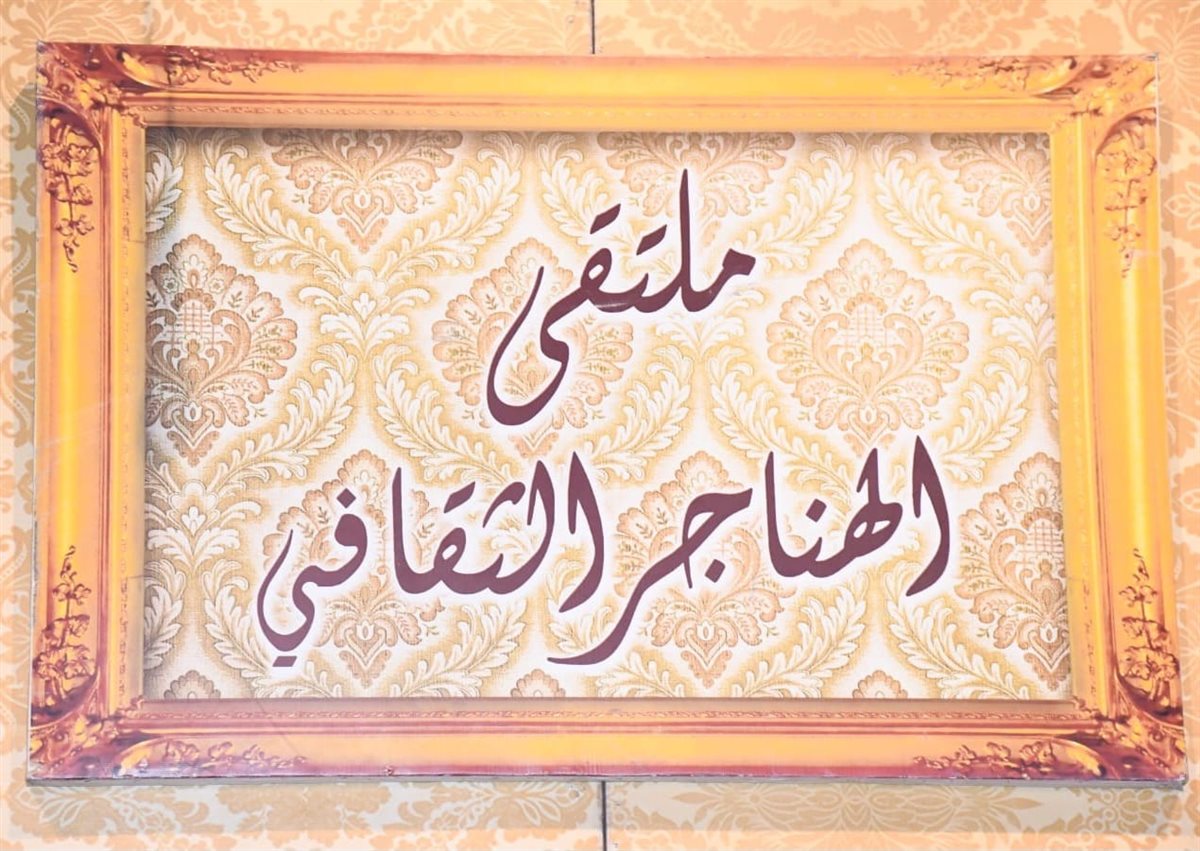 ملتقى
الهناجر الثقافي